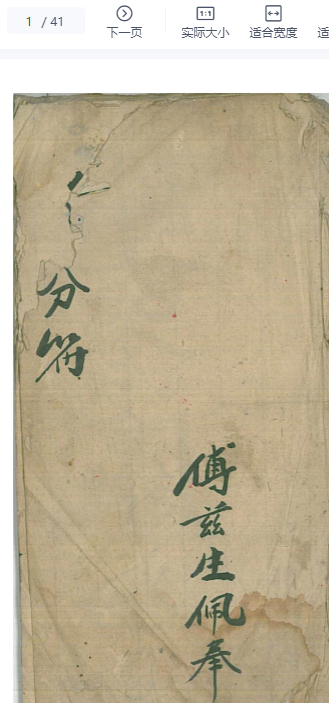 1 / 41
下一页
实际大小
适合宽度
适
分符
傅兹生佩奉